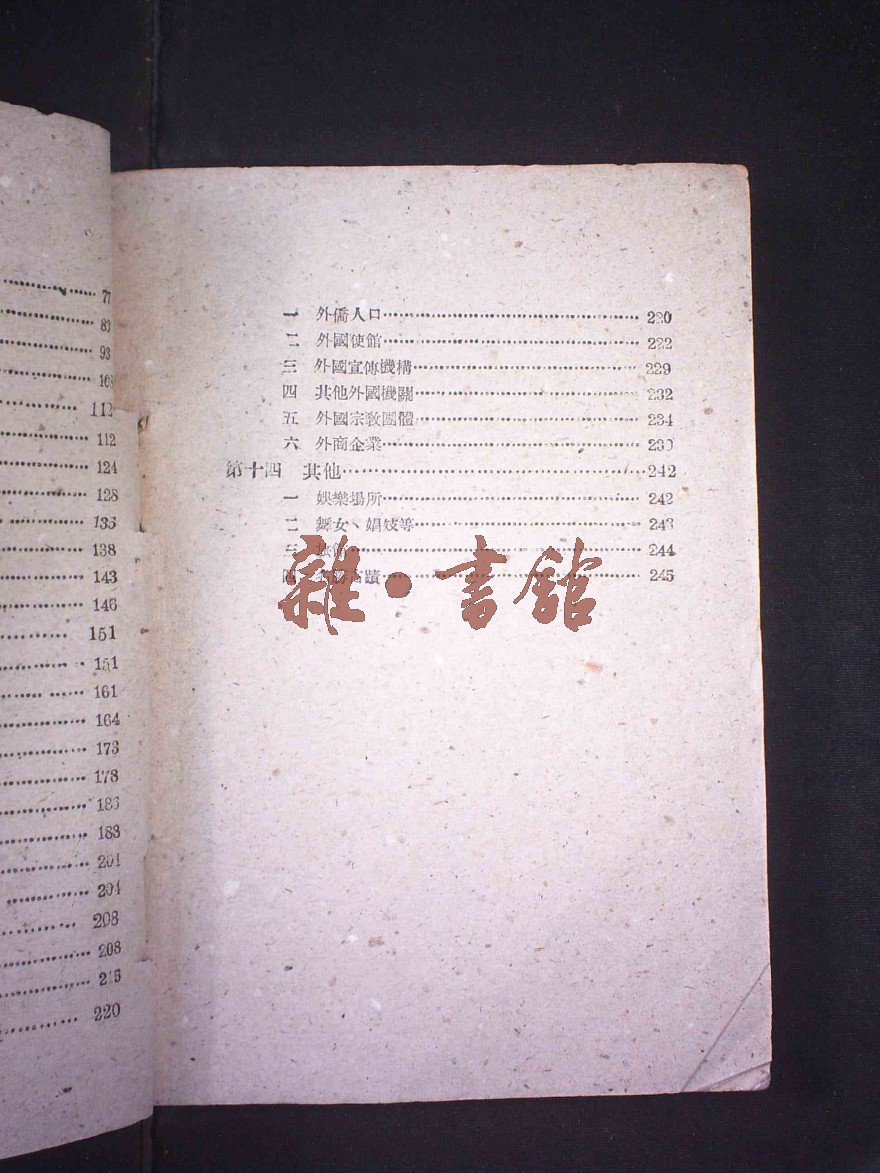 77
83
93
103
112
112
124
128
135
138
143
146
151
151
161
164
173
178
188
201
204
208
208
220
一 外僑人口 220
二 外國使館 222
三 外國宣傳機構 229
四 其他外國機關 232
五 外國宗教團體 234
六 外商企業
第十四 其他 242
一 娛樂場所 242
二 舞女、娼妓等 243
三 244
四 245
雜·書館